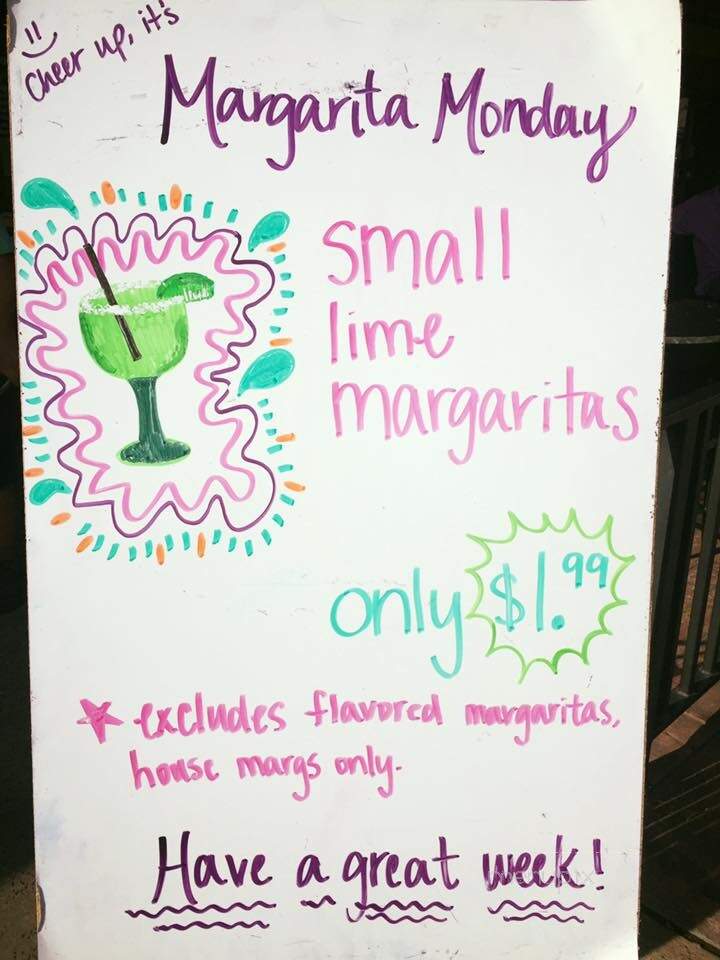 Cheer up, it's
Margarita Monday
small
lime
margaritas
only $1.99
excludes flavored margaritas,
house margs only.
Have a great week!